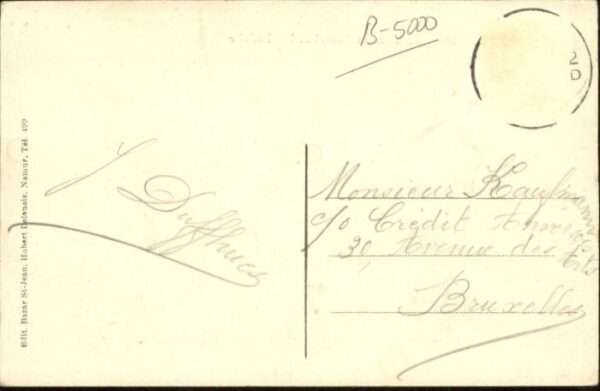 B-5000
2
D
Edit. Bazar St-Jean, Hubert Delensie, Namur, Tél. 499
J Duffhues
Monsieur Kaufmann
c/o Crédit Anversois
30, Avenue des Arts
Bruxelles